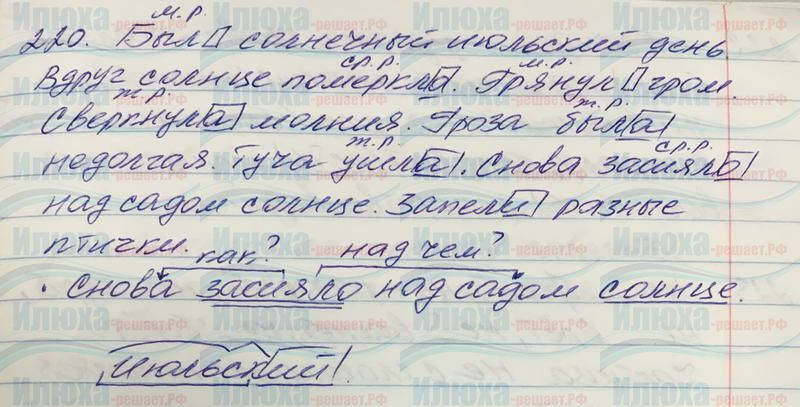 м.р.
220. Был солнечный июльский день.
ср.р. м.р.
Вдруг солнце померкла. Грянул гром.
ж.р. ж.р.
Сверкнула молния. Гроза была
ж.р. ср.р.
недолгая. Туча ушла. Снова засияло
над садом солнце. Запели разные
птички.
как? над чем?
Снова засияло над садом солнце.
июльский.